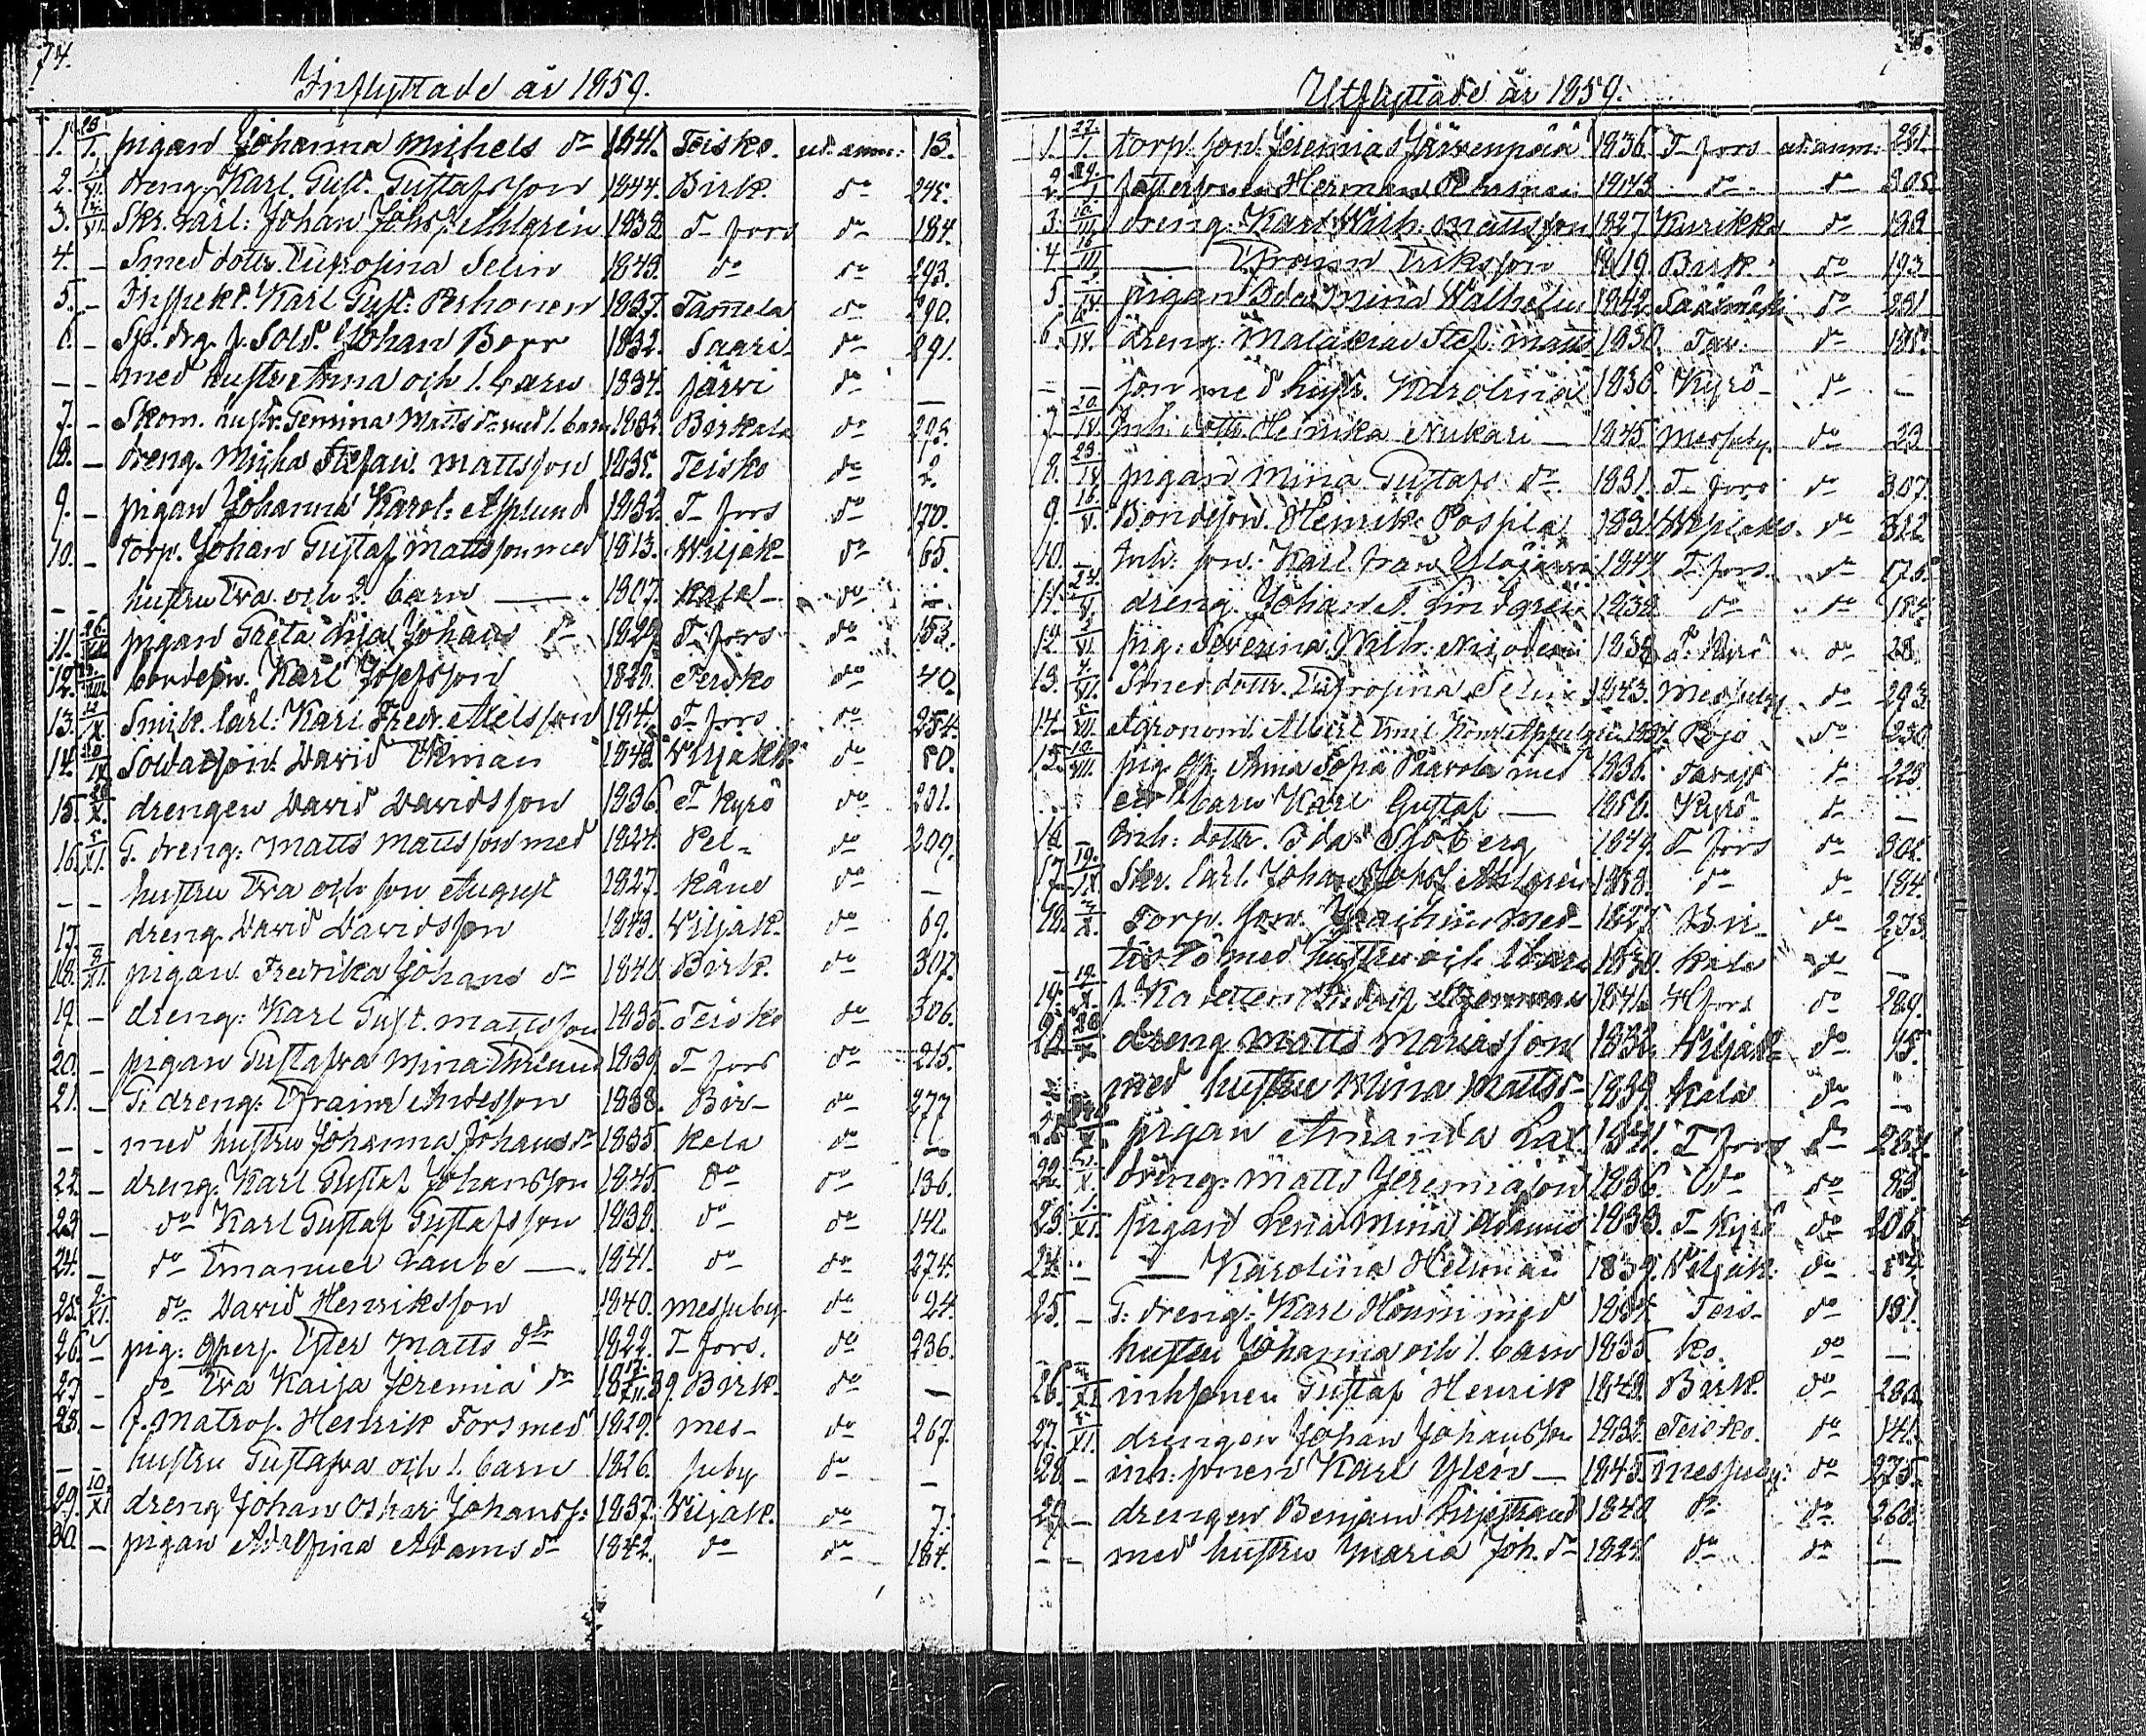 74.
Inflyttade år 1859.
1. 23/1. pigan Johanna Michels dr 1841. Teisko. ut. anm: 13.
2. dreng. Karl Gust. Gustafsson 1844. Birk. do 245.
3. Skr. lärl: Johan Johsf. Ahlgren 1838. T-fors do 184.
4. — Smed dottr. Eufrosina Selin 1843. do do 293.
5. — Inspekt. Karl Gust. Perhonen 1837. Tamela do 290.
6. — Sp. drg. f. Sold. Johan Borr 1832. Saari- do 291.
— — med hustr. Anna och 1. barn 1834. järvi do —
7. — Skom. hustr. Gemina Matts dr med 1. barn 1832. Birkala do 298.
8. — dreng. Micha Stefan. Mattsson 1835. Teisko do 2.
9. — pigan Johanna Karol: Asplund 1832. T-fors do 170.
10. — torp. Johan Gustaf Mattsson med 1813. Wiljak- do 65.
— — hustru Eva och 2 barn — 1807. kala — do —
11. pigan Greta Caja Johans dr 1829. T-fors do 153.
12. bondesn. Karl Josefsson 1828. Teisko do 40.
13. Snick. lärl: Karl Fredr. Nelsson 1841. T-fors do 254.
14. Soldatson. David Ekman 1843. Wiljakk. do 80.
15. drengen David Davidsson 1836. T Kyrö do 231.
16. 5/XI. T. dreng: Matts Mattsson med 1824. Pel- do 209.
— — hustru Eva och son August 1827. käne do —
17. — dreng. David Davidsson 1843. Wiljak. do 69.
18. pigan Fredrika Johans dr 1840. Birk. do 307.
19. — dreng: Karl Gust. Mattsson 1835. Teisko do 306.
20. — pigan Gustafva Mina 1839. T-fors do 215.
21. — T. dreng: Efraim Andersson 1838. Bir- do 277
— — med hustru Johanna Johans dr 1835. kala do —
22. — dreng. Karl Gustaf Johansson 1845. do do 136.
23. — do Karl Gustaf Gustafsson 1838. do do 142.
24. — do Emanuel Laube — 1841. do do 274.
25. do David Henriksson 1840. Messuby do 24.
26. — pig: Ester Matts dtr 1822. T-fors. do 236.
27. — do Eva Kaija Jeremia dr Birk. do —
28. — f. Matros. Henrik Fors med 1829. Mes- do 267.
— — hustru Gustafva och 1. barn 1826. suby do —
29. 10/XI dreng Johan Oskar Johanss: 1837. Wiljak. do 7.
30. — pigan Adolfina Adams dr 1842. do do 184.
Utflyttade år 1859.
1. 27/1. torp. son. Jeremias Järvenpää 1836. T-fors ut. anm: 281.
2. Herman 1843 do do 305.
3. dreng. Karl Wilh. Mattsson 1827 Kurikka do 198.
4. — Efraim Eriksson 1819. Birk. do 193
5. pigan Ida Mina Walhelm 1842. Sääxmäki do 231
6. dreng. Malakias Stef. Matts 1830. Tav. do 188.
— — son med hustr. Karolina 1836. Kyrö- do —
7. Inh. dottr. Henrika Nukari — 1845. Messuby. do 23
8. pigan Mina Gustafs dr 1831. T-fors do 307.
9. 16/V. Bondeson. Henrik Pospila 1831. do 312.
10. — Inh: son. Karl Fran. Ylöjärvi 1844 T-fors. do 175.
11. dreng. Johan A. Lindgren 1838. do do 184.
12. pig: Severina Wilh. 1838. T. Kyrö do 28.
13. Smed dottr. Eufrosina Selin 1843. Messuby do 293.
14. Agronom. Albert Emil Bojo do 230.
15. pig. Anna Sofia Paavola med 1836. Tavast do 228.
barn Karl Gustaf — 1856. Kyrö- do —
16. Inh: dottr. Ida Sjöberg 1849. T-fors do 301.
17. Skr. lärl. Johan Johsf Ahlgren 1838. do do 184.
18. torp. son. Joachim Med- 1827. Bir- do 233.
med hustru och 1 barn 1830. kala do —
19. f. Kadetten 1841. H fors do 289.
20. dreng Matts Mariasson 1832. Wiljak- do 95.
— med hustru Mina Mattsd- 1839. kala do —
21. pigan Amanda Lax. 1841. T fors do 287.
22. dreng: Matts Jeremiason 1836. do do 83.
23. 1/XI. pigan Lena Mina Adams 1833. T-Kyrö do 206.
24. — — Karolina Helsman 1839. Wiljak: do 84.
25. — T: dreng: Karl Hounin med 1834. Teis- do 131.
— — hustru Johanna och 1. barn 1835. ko. do —
26. inhsonen Gustaf Henrik 1842. Birk. do 280.
27. drengen Johan Johansson 1832. Teisko. do 141.
28 — inh: sonen Karl Ylén — 1845. Messuby: do 275.
29. — drengen Benjam Liljestrand 1848. do do 260.
— — med hustru Maria Joh. dr 1824. do do —